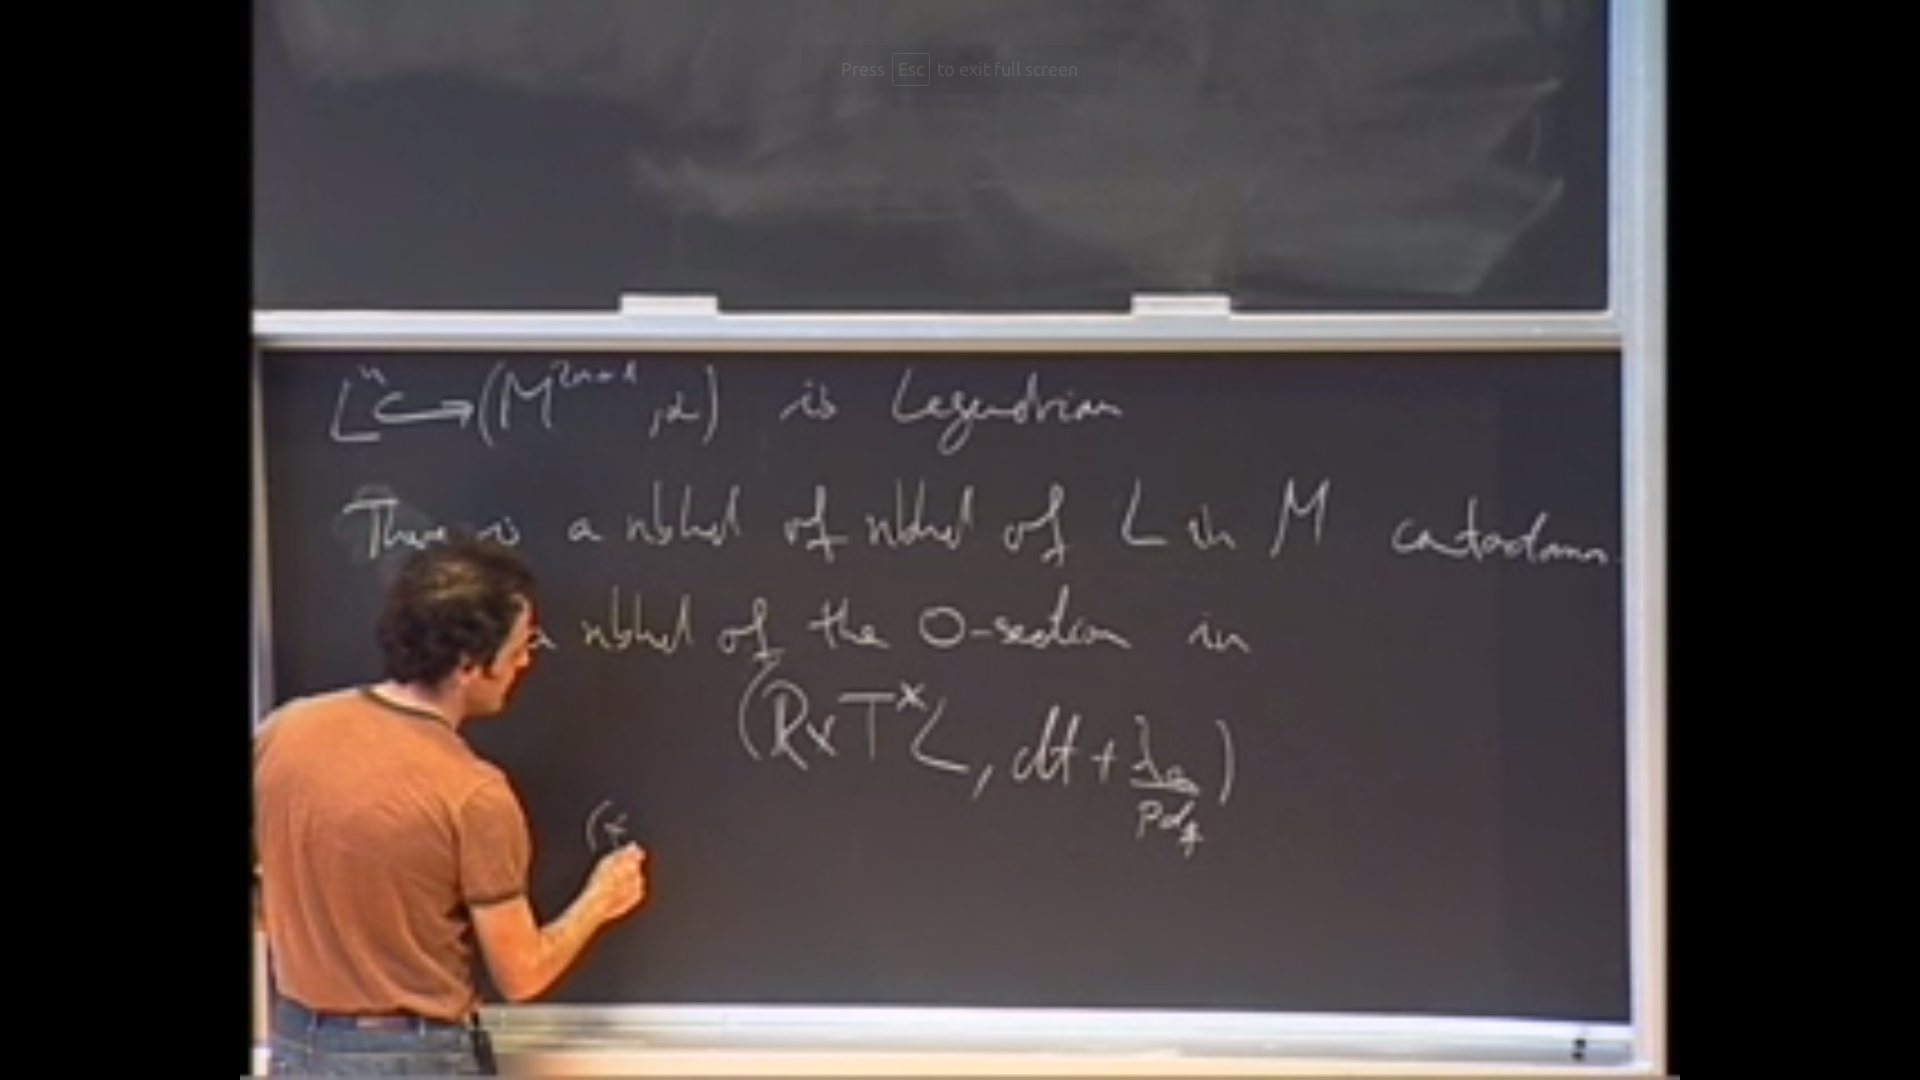 Press Esc to exit full screen
Lⁿ ↪ (M²ⁿ⁺¹, α) is Legendrian
There is a nbhd of nbhd of L in M contactom.
a nbhd of the 0-section in
(R×T*L, dt + λ₀)
pdq
(x